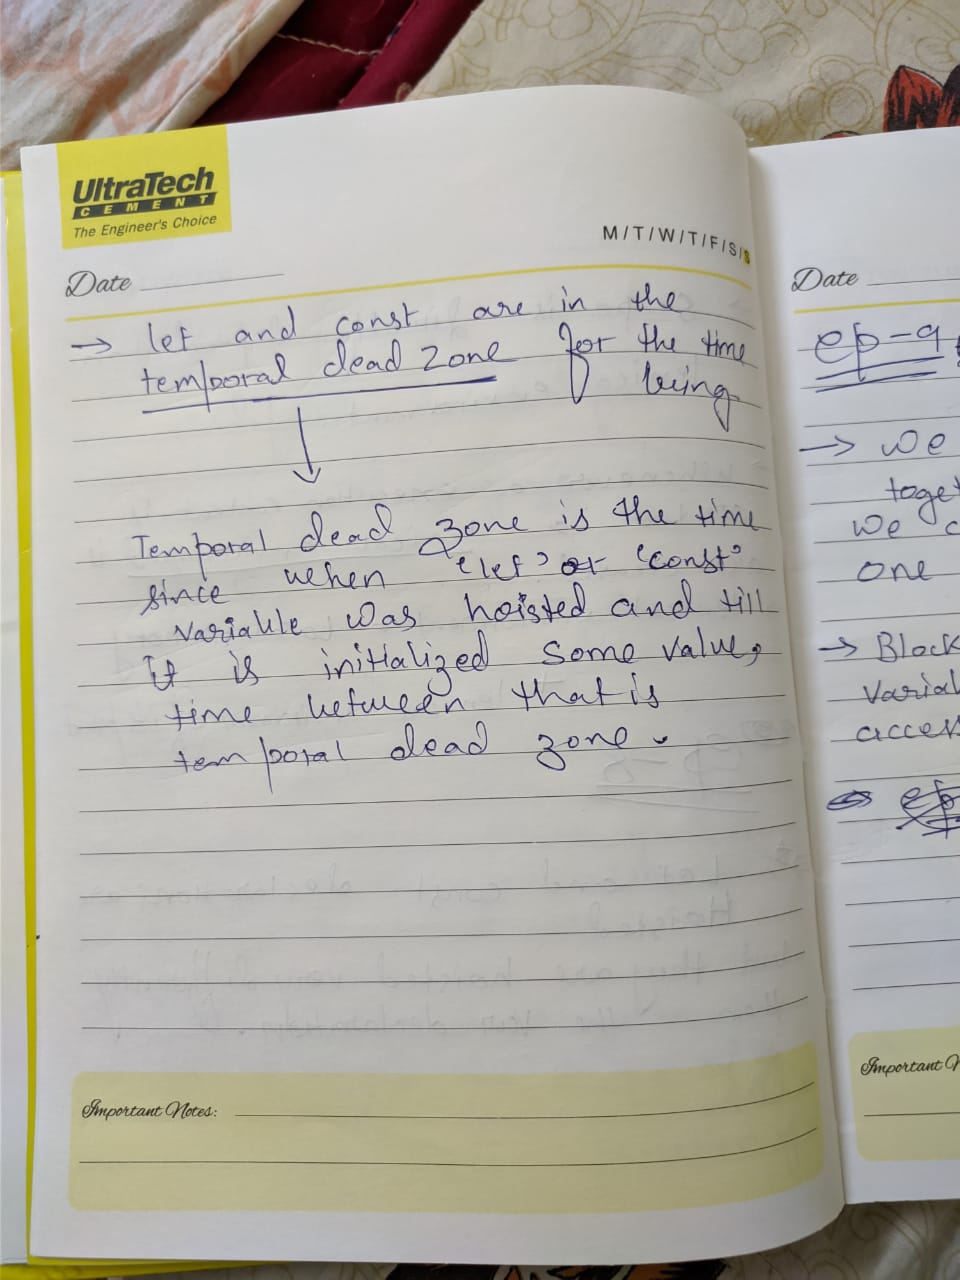 UltraTech
CEMENT
The Engineer's Choice
M/T/W/T/F/S/S
Date
→ let and const are in the
temporal dead zone for the time
being
Temporal dead zone is the time
since when 'let' or 'const'
variable was hoisted and till
it is initialized some value,
time between that is
temporal dead zone.
Important Notes:
Date
ep-9
→ we
toget
we c
one
→ Block
variab
access
ep
Important N